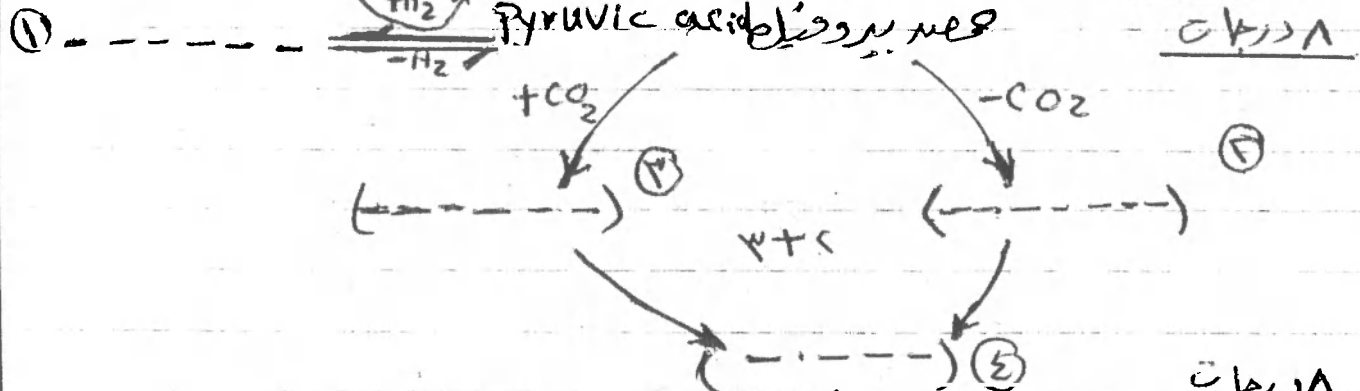 +H2
① - - - - - - Pyruvic acid حمض بيروفيك ٨ درجات
-H2
+CO2 -CO2
(- - - - - -) ③ (- - - - - -) ②
٣+٢
(- - - - -) ④
٨ درجات